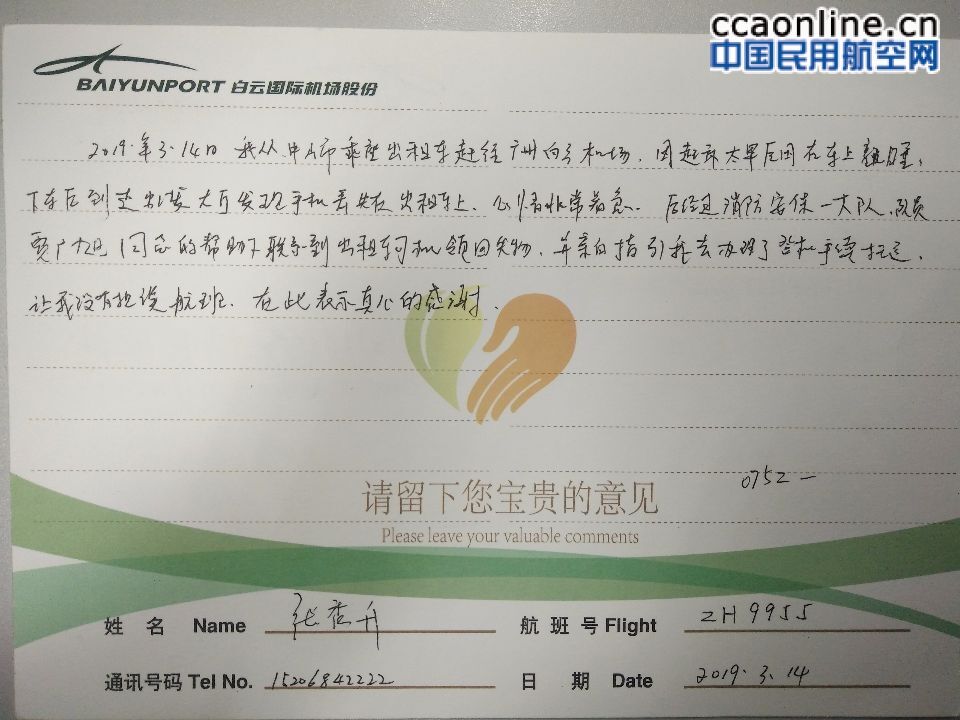 ccaonline.cn
中国民用航空网
BAIYUNPORT 白云国际机场股份
2019.年3.14日 我从中山市乘座出租车赶往广州白云机场.因起床太早后因在车上
下车后到达出发大厅发现手机丢失在出租车上.心情非常着急.后经过消防安保一大队,队员
贾 同志的帮助下联系到出租车司机领回失物,并亲自指引我去办理了登机手续托运,
让我没有担误航班.在此表示真心的感谢.
0752一
请留下您宝贵的意见
Please leave your valuable comments
姓 名 Name 张 升 航 班 号 Flight ZH9955
通讯号码 Tel No. 15206842222 日 期 Date 2019.3.14